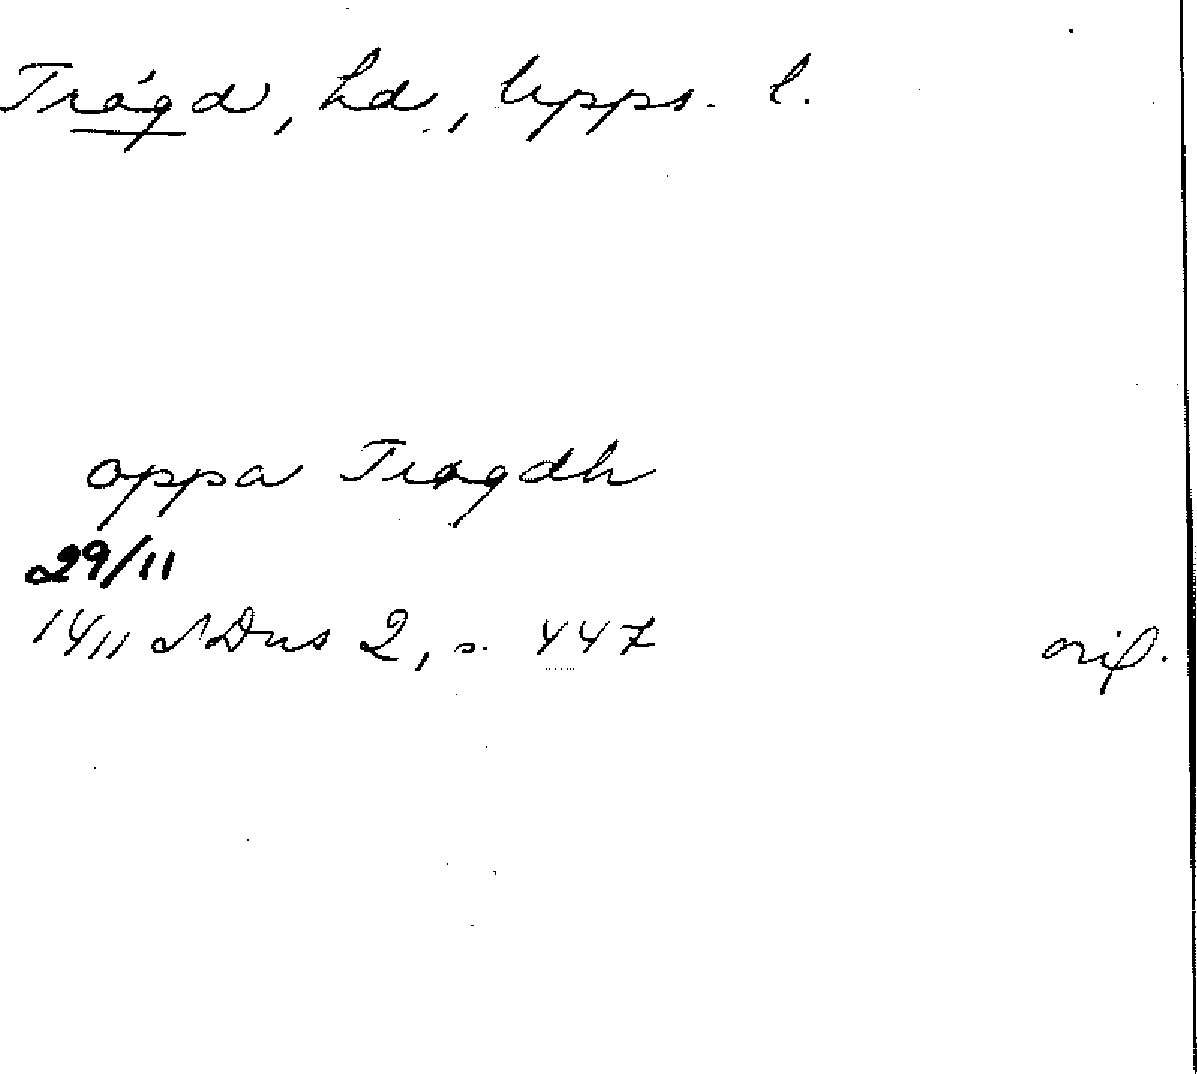 Trögd, hd, Upps. l.
oppa Trøgdh
29/11
1411 SDns 2, s. 447 orig.